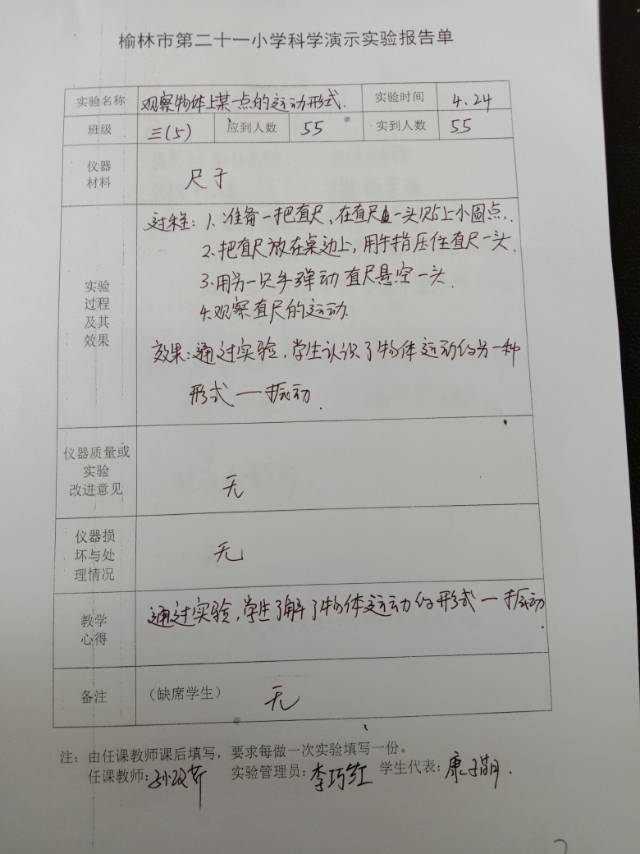 榆林市第二十一小学科学演示实验报告单
实验名称 观察物体上某一点的运动形式. 实验时间 4.24
班级 三(5) 应到人数 55 实到人数 55
仪器
材料
尺子
实验
过程
及其
效果
过程: 1. 准备一把直尺, 在直尺一头上小圆点.
2. 把直尺放在桌边上, 用手指压住直尺一头.
3. 用另一只手弹动直尺悬空一头.
4. 观察直尺的运动.
效果: 通过实验, 学生认识了物体运动的另一种
形式一振动.
仪器质量或
实验
改进意见
无
仪器损
坏与处
理情况
无
教学
心得
通过实验, 学生了解了物体运动的形式一振动
备注 (缺席学生) 无
注: 由任课教师课后填写, 要求每做一次实验填写一份。
任课教师: 实验管理员: 李巧红 学生代表: 康
2